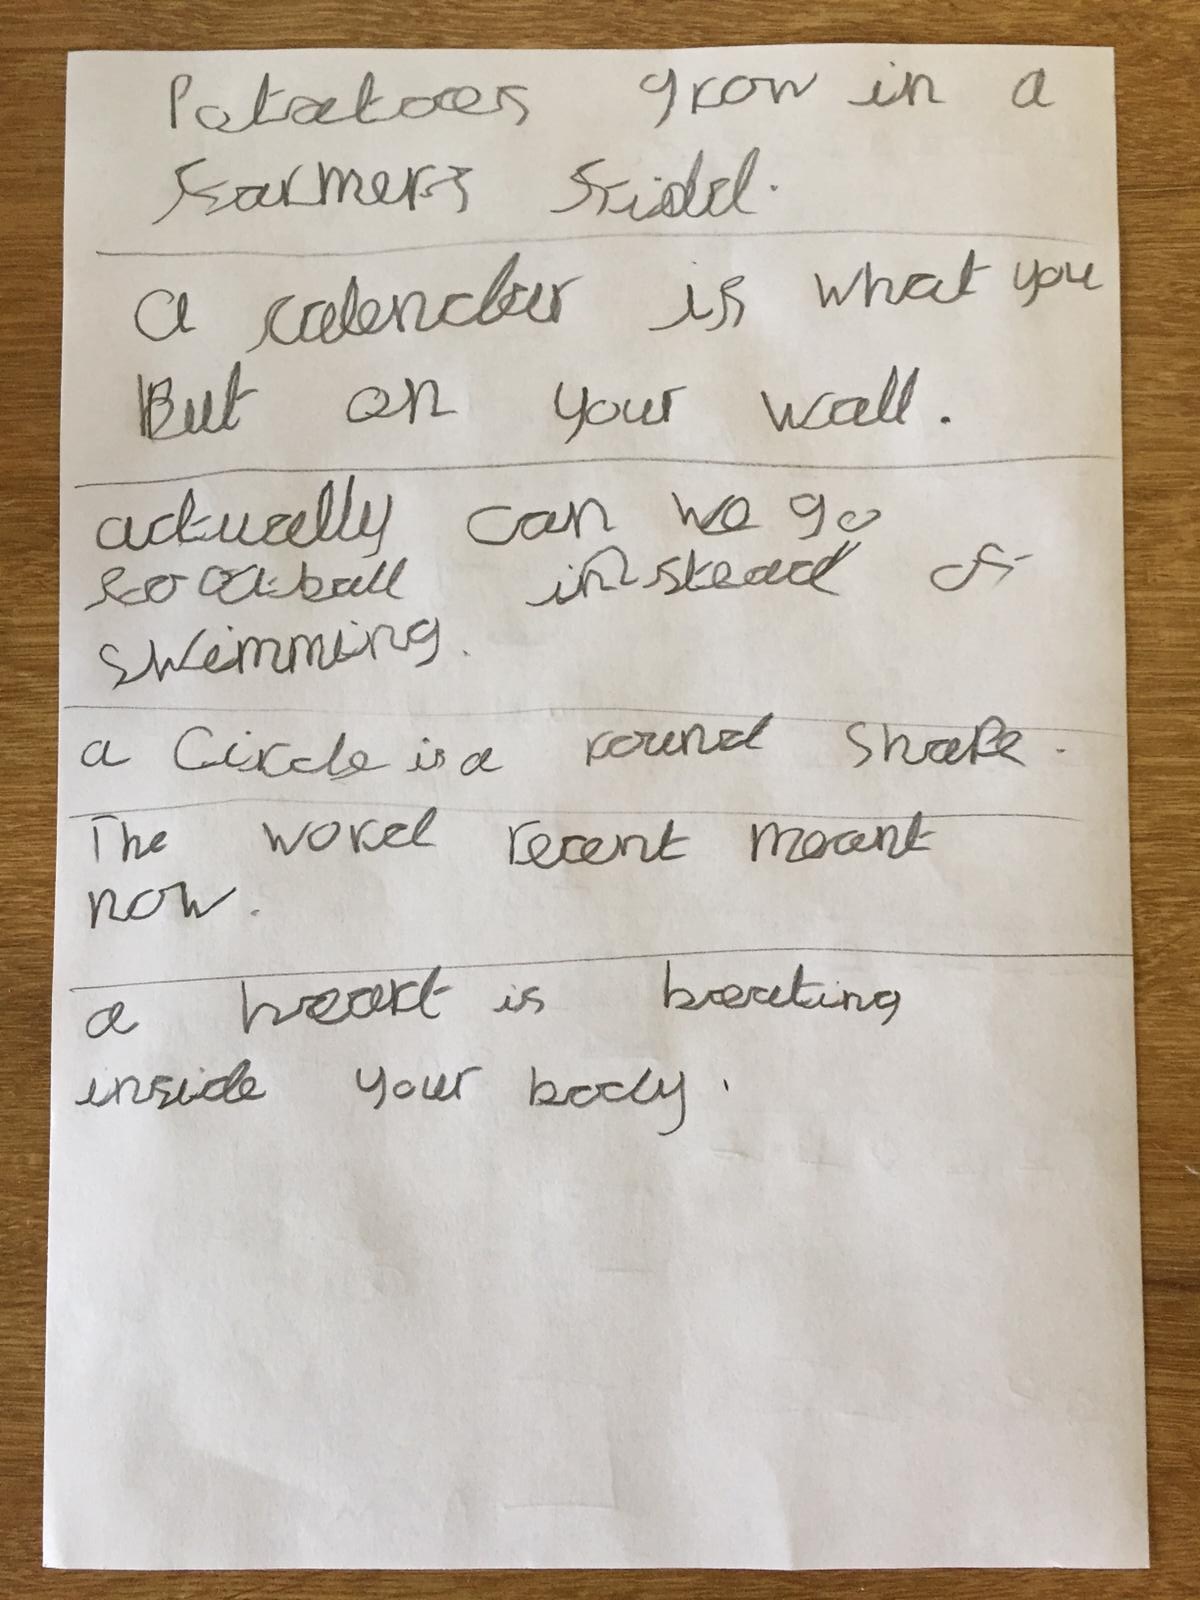 Potatoes grow in a
farmers fridel.
a calendur is what you
But on your wall.
actually can we go
football instead of
swimming.
a Circle is a round shape.
The word recent meant
now.
a heart is beating
inside your body.